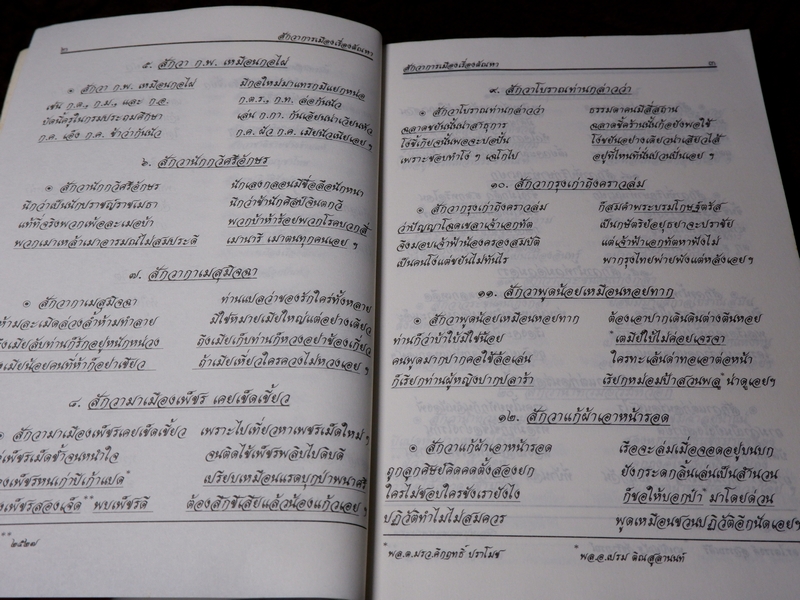 ๒
สักวาการเมืองเรื่องตัณหา
๕. สักวา ก.พ. เหมือนกอไผ่
๏ สักวา ก.พ. เหมือนกอไผ่ มีกอใหม่มาแทรกมีแยกหน่อ
เช่น ก.ต., ก.ม., และ ก.อ. ก.ต.ร., ก.ท. ล่อกันนัว
บัดนี้ครูในกรมประถมศึกษา เล่น ก.ภา. กันเอียนน่าเวียนหัว
ก.ค. เอ็ง ก.ค. ข้าว่ากันนัว ก.ค. ผัว ก.ค. เมียนัวเนียเอย ฯ
๖. สักวานักกวีศรีอักษร
๏ สักวานักกวีศรีอักษร นักเลงกลอนมีชื่อลือนักหนา
นึกว่าเป็นนักปราชญ์ราชเมธา นึกว่าข้านักศิลป์จินตกวี
แท้ที่จริงพวกเพ้อละเมอบ้า พวกบ้าห้าร้อยพวกโรคบวกสี่
พวกเมาเหล้าเมาอารมณ์ไม่สมประดี เมานารี เมาตนทุกคนเอย ฯ
๗. สักวากาเมสุมิจฉา
๏ สักวากาเมสุมิจฉา ท่านแปลว่าของรักใคร่ทั้งหลาย
ห้ามละเมิดล่วงล้ำห้ามทำลาย มิใช่หมายเมียใหญ่แต่อย่างเดียว
ถึงเมียลับท่านก็รักอยู่หนักหน่วง ถึงเมียเก็บท่านก็หวงอย่าข้องเกี่ยว
เมียน้อยคนที่ห้าก็อย่าเชียว ถ้าเมียเหี่ยวใครควงไม่หวงเอย ฯ
๘. สักวามาเมืองเพ็ชร เคยเข็ดเขี้ยว
๏ สักวามาเมืองเพ็ชรเคยเข็ดเขี้ยว เพราะไปเที่ยวหาเพชรเม็ดใหม่ ๆ
เพ็ชรเม็ดช้ำจนหน้าใจ จนติดไข้เพ็ชรพลิบไปดับดี
เพ็ชรหนเก่าปีเก้าแปด* เปรียบเหมือนแรดบุกป่าพนาศรี
เพ็ชรสองเจ็ด** พบเพ็ชรดี ต้องสึกซิเสียแล้วน้องแก้วเอย ฯ
** ๒๕๒๗
สักวาการเมืองเรื่องตัณหา
๓
๙. สักวาโบราณท่านกล่าวว่า
๏ สักวาโบราณท่านกล่าวว่า ธรรมดาคนมีสี่สถาน
ฉลาดขยันนั้นน่าสาธุการ ฉลาดขี้คร้านนั้นก็ยังพอใช้
โง่ขี้เกียจนั้นพอจะปอปั้น โง่ขยันอย่างเดียวน่าเสียวไส้
เพราะชอบทำโง่ ๆ เฉโกไป อยู่ที่ไหนที่นั่นป่วนปั่นเอย ฯ
๑๐. สักวากรุงเก่าถึงคราวล่ม
๏ สักวากรุงเก่าถึงคราวล่ม ก็สมคำพระบรมโกษฐ์ตรัส
ว่าปัญญาโฉดเขลาเจ้าเอกทัต เป็นกษัตริย์อยุธยาจะปราชัย
จึงมอบเจ้าฟ้าน้องครองสมบัติ แต่เจ้าฟ้าเอกทัตหาฟังไม่
เป็นคนโง่แต่ขยันไม่ทันไร พากรุงไทยพ่ายพังแต่หลังเอย ฯ
๑๑. สักวาพูดน้อยเหมือนหอยทาก
๏ สักวาพูดน้อยเหมือนหอยทาก ต้องเอาปากเดินดินต่างตีนหอย
ท่านก็ว่าบ้าใบ้มิใช่น้อย *เตมีย์ใบ้ไม่ค่อยเจรจา
คนพูดมากปากคอใช้ล้อเล่น ใครทะเล้นด่าทอเอาต่อหน้า
ก็เรียกท่านผู้หญิงปากปลาร้า เรียกหม่อมป้าสวนพลู* น่าดูเอยฯ
๑๒. สักวาแก้ผ้าเอาหน้ารอด
๏ สักวาแก้ผ้าเอาหน้ารอด เรือจะล่มเมื่อจอดอยู่บนบก
ถูกลูกศิษย์คิดคดตั้งสองยก ยังกระดกลิ้นเล่นเป็นสำนวน
ใครไม่ชอบใครชังเรายังไง ก็ขอให้บอกป๋า* มาโดยด่วน
ปฏิวัติทำไมไม่สมควร พูดเหมือนชวนปฏิวัติอีกนัดเอยฯ
*พล.ต.มรว.คึกฤทธิ์ ปราโมช *พล.อ.เปรม ติณสูลานนท์